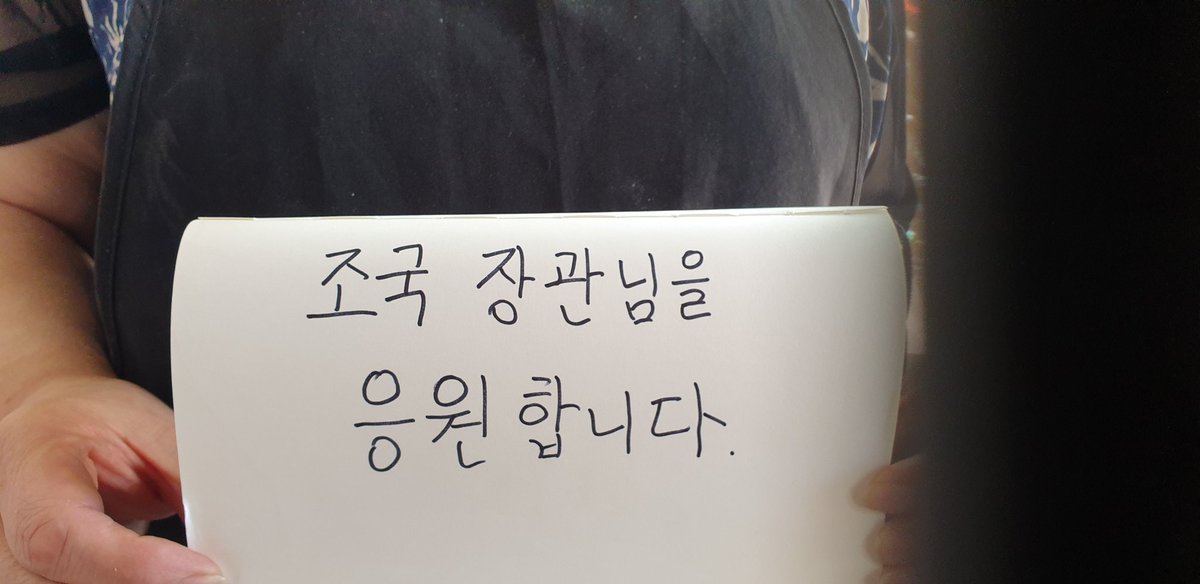 조국 장관님을
응원합니다.